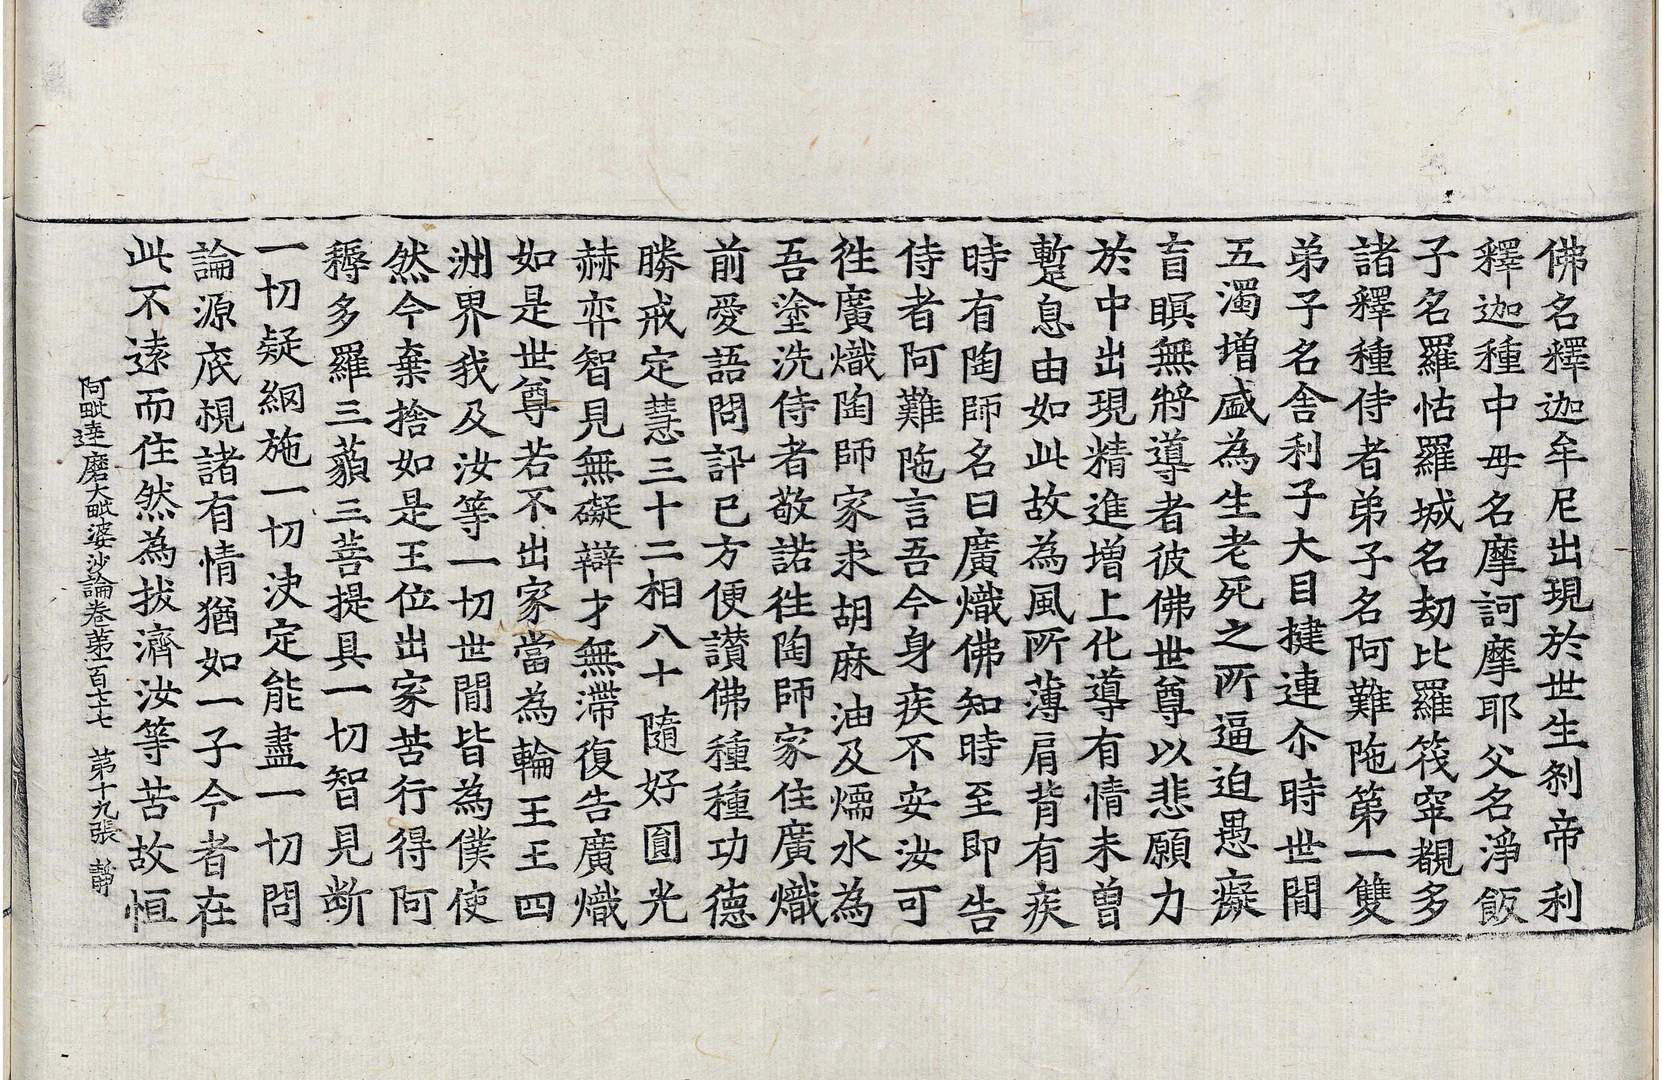 佛名釋迦牟尼出現於世生刹帝利
釋迦種中母名摩訶摩耶父名淨飯
子名羅怙羅城名劫比羅筏窣覩多
諸釋種侍者弟子名阿難陁第一雙
弟子名舍利子大目揵連尒時世間
五濁增盛為生老死之所逼迫愚癡
盲瞑無將導者彼佛世尊以悲願力
於中出現精進增上化導有情未曾
蹔息由如此故為風所薄肩背有疾
時有陶師名曰廣熾佛知時至即告
侍者阿難陁言吾今身疾不安汝可
徃廣熾陶師家求胡麻油及㷉水為
吾塗洗侍者敬諾徃陶師家住廣熾
前愛語問訊已方便讃佛種種功德
勝戒定慧三十二相八十隨好圓光
赫弈智見無礙辯才無滯復告廣熾
如是世尊若不出家當為輪王王四
洲界我及汝等一切世間皆為僕使
然今棄捨如是王位出家苦行得阿
耨多羅三藐三菩提具一切智見斷
一切疑網施一切決定能盡一切問
論源底視諸有情猶如一子今者在
此不遠而住然為拔濟汝等苦故恒
阿毗達磨大毗婆沙論卷第一百七十七 第十九張 靜